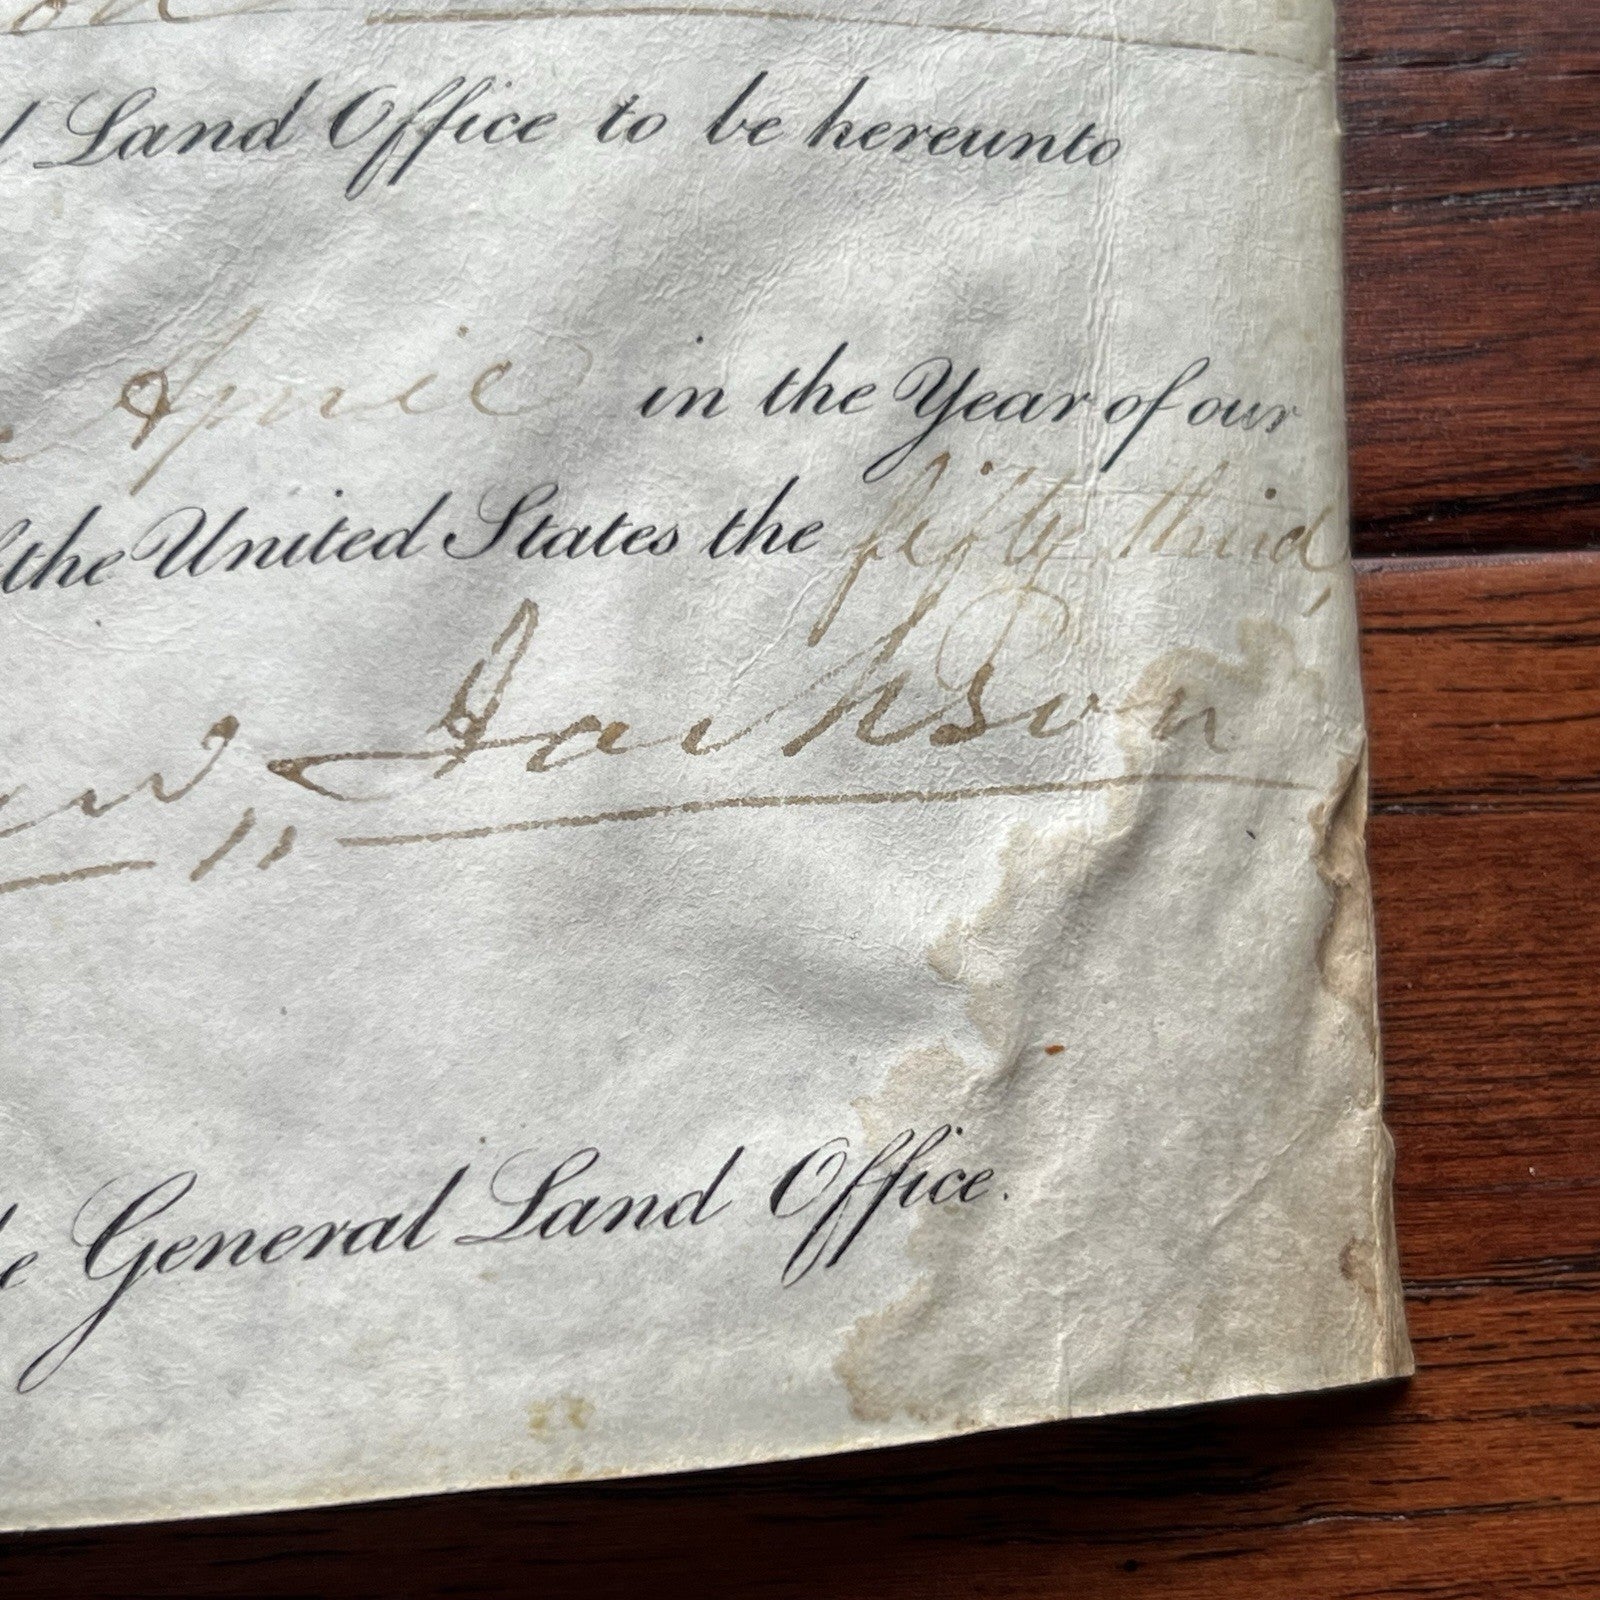 Land Office to be hereunto
April in the Year of our
the United States the fifty third,
Jackson
General Land Office.